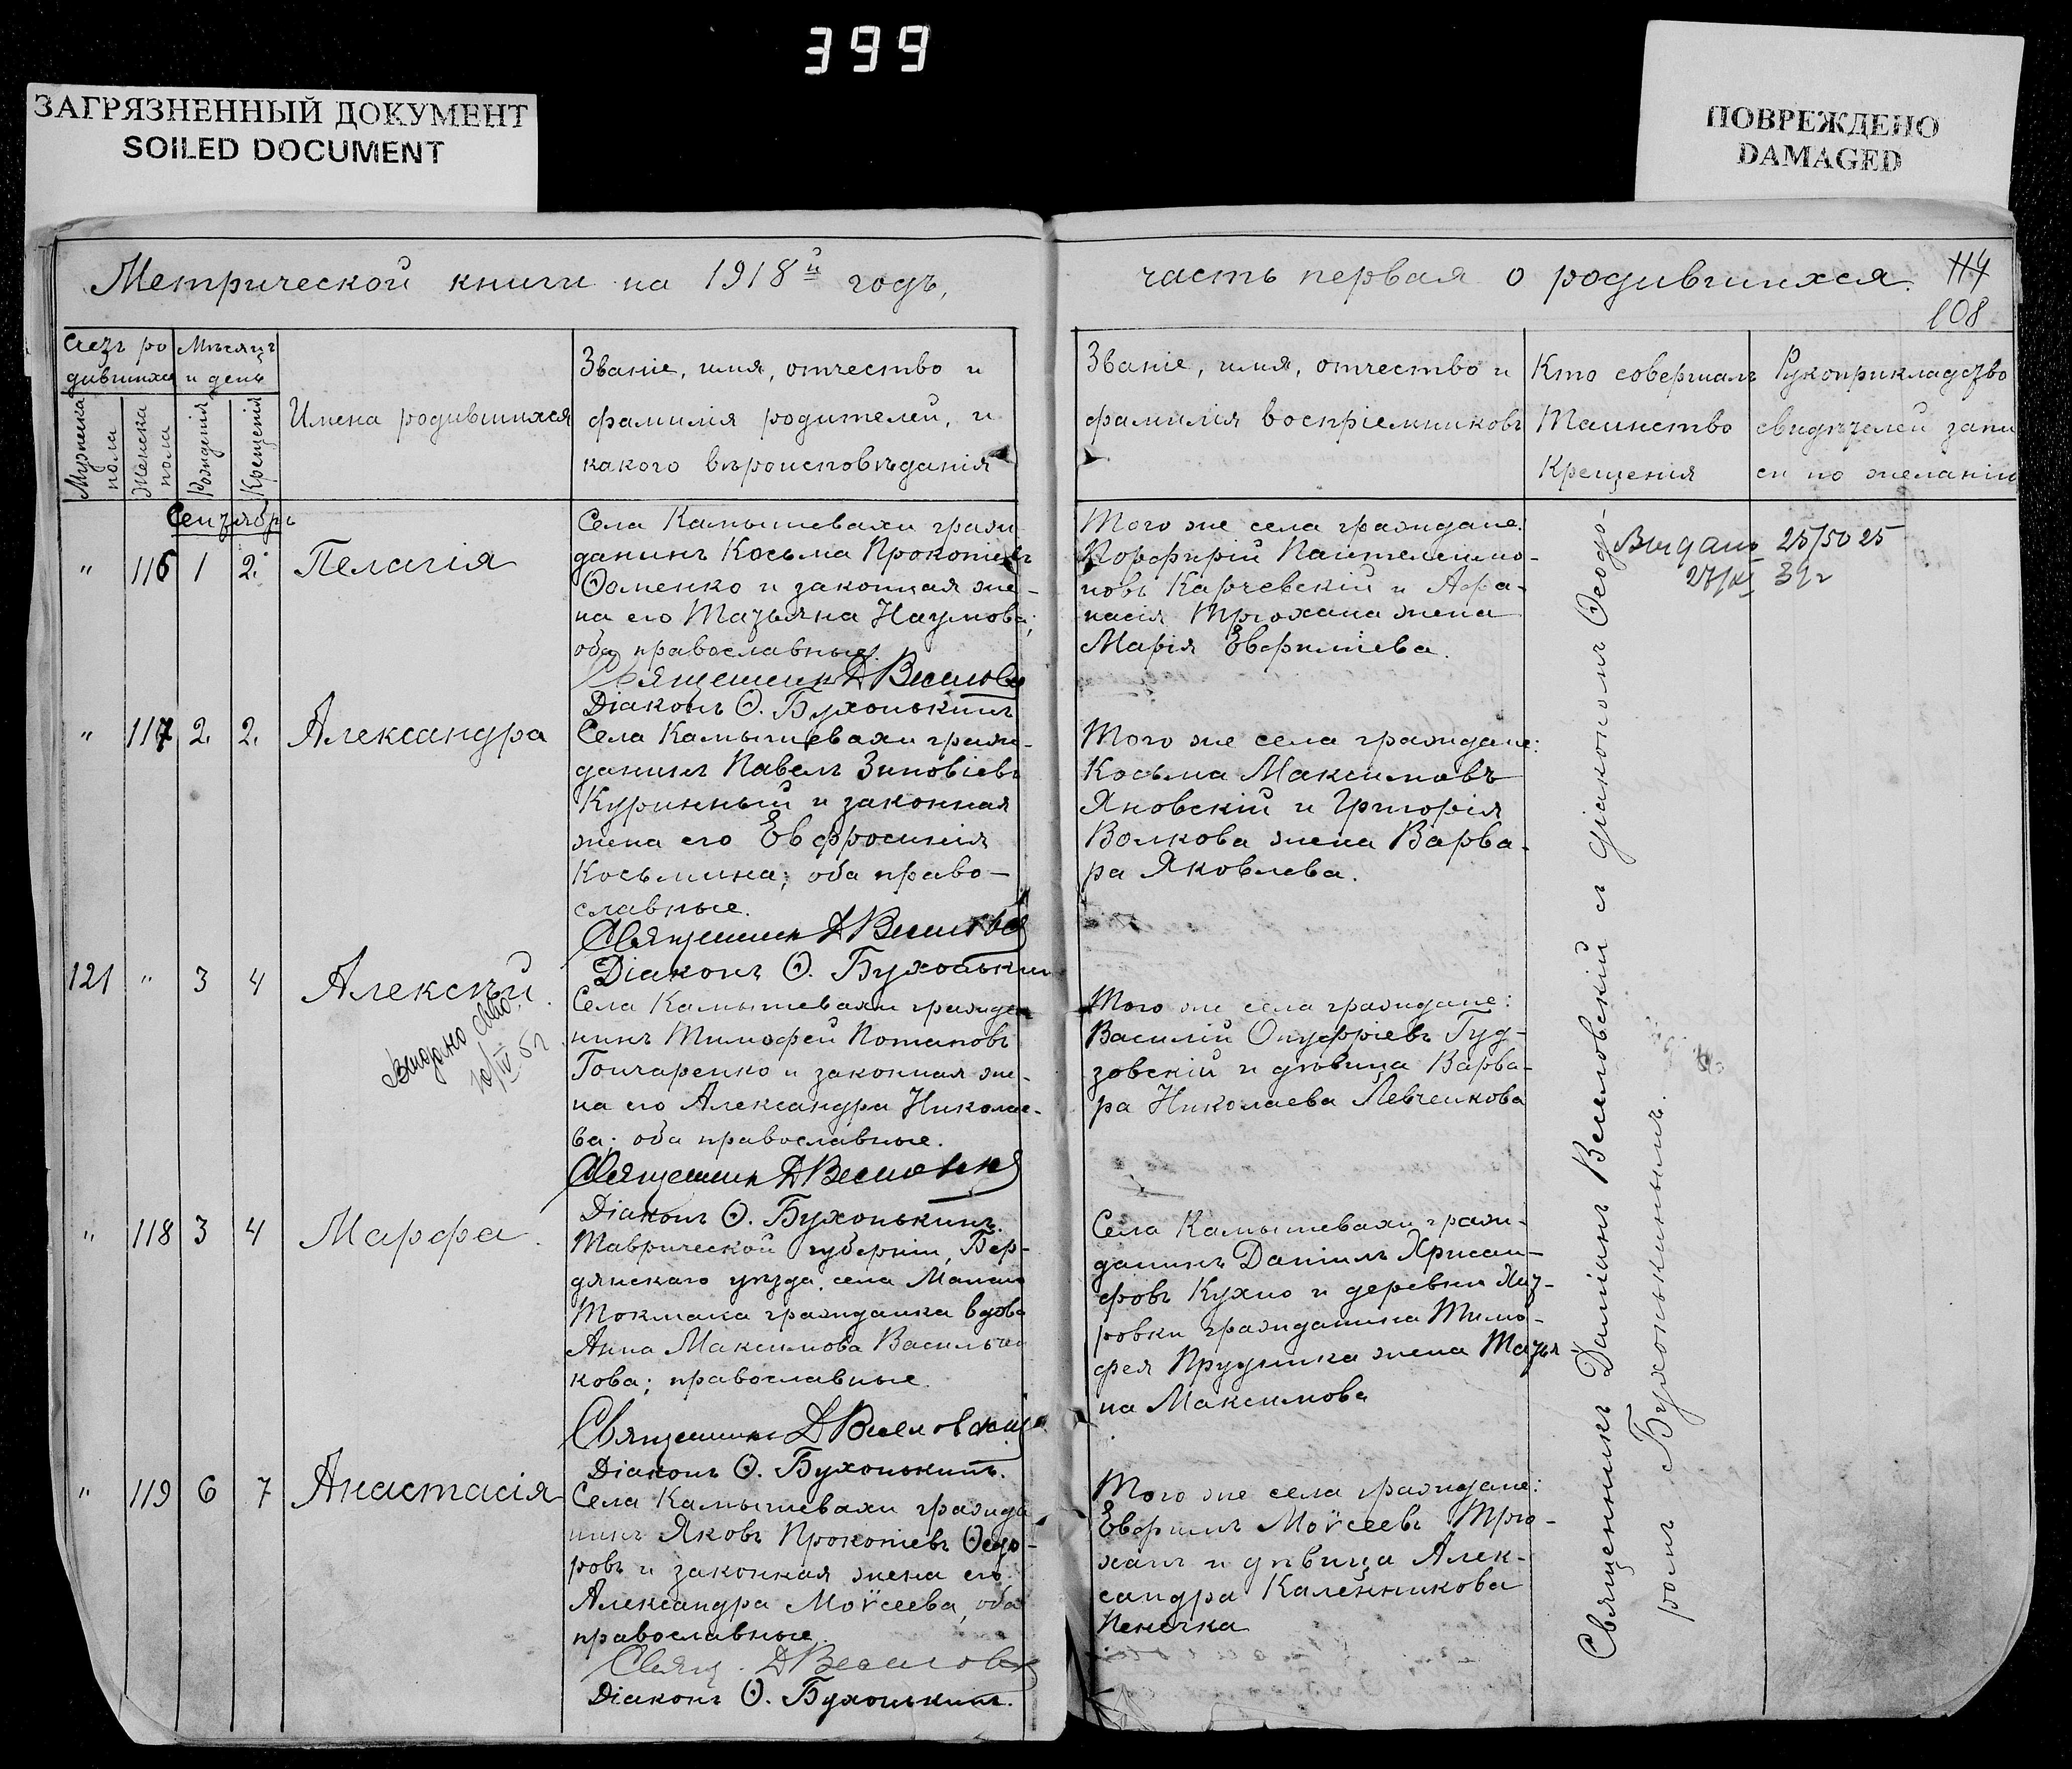 399
ЗАГРЯЗНЕННЫЙ ДОКУМЕНТ
SOILED DOCUMENT
ПОВРЕЖДЕНО
DAMAGED
Метрической книги на 1918й годъ,
часть первая о родившихся.
114
108
Счетъ ро
дившихся
Мѣсяцъ
и день
Мужеска
пола
Женска
пола
Рожденія
Крещенія
Имена родившихся
Званіе, имя, отчество и
фамилія родителей, и
какого вѣроисповѣданія
Званіе, имя, отчество и
фамилія воспріемниковъ
Кто совершалъ
Таинство
Крещенія
Рукоприкладство
свидѣтелей запи
си по желанію
Сентябрь
" 116 1 2. Пелагія
Села Камышевахи граж
данинъ Косьма Прокопіевъ
Ѳоменко и законная же-
на его Татьяна Наумова;
оба православные.
Священникъ Д Веселовскій
Діаконъ Ѳ. Бухонькинъ
Того же села граждане:
Порфирій Пантелеимо-
новъ Карчевскій и Афа-
насія Трюхана жена
Марія Евфиміева.
Выдано 25/50 25
27/XI 39г
" 117 2. 2. Александра
Села Камышевахи граж-
данинъ Павелъ Зиновіевъ
Куринный и законная
жена его Евфросинія
Косьмина; оба право-
славные.
Священникъ Д Веселовскій
Діаконъ Ѳ. Бухонькинъ
Того же села граждане:
Косьма Максимовъ
Яновскій и Григорія
Волкова жена Варва-
ра Яковлева.
121 " 3 4 Алексѣй.
Выдано
10/IV
Села Камышевахи гражда
нинъ Тимофей Потаповъ
Гончаренко и законная же-
на его Александра Николае-
ва; оба православные.
Священникъ Д Веселовскій
Діаконъ Ѳ. Бухонькинъ.
Того же села граждане:
Василій Онуфріевъ Гуд-
зовскій и дѣвица Варва-
ра Николаева Левченкова
" 118 3 4 Марфа.
Таврической губерніи, Бер-
дянскаго уѣзда, села Малаго
Токмака гражданка вдова
Анна Максимова Васильчи
кова; православные.
Священникъ Д Веселовскій
Діаконъ Ѳ. Бухонькинъ.
Села Камышевахи граж-
данинъ Даніилъ Хрисан-
фовъ Кухно и деревни
ровки гражданина Тимо-
фея Прудника жена Татья
на Максимова
" 119 6 7 Анастасія
Села Камышевахи гражда
нинъ Яковъ Прокопіевъ Ѳедо-
ровъ и законная жена его
Александра Моѵсеева, оба
православные.
Свящ. Д Веселовскій
Діаконъ Ѳ. Бухонькинъ.
Того же села граждане:
Евфимъ Моѵсеевъ Трю-
ханъ и дѣвица Алек-
сандра Каленникова
Пенечка
Священникъ Даміанъ Веселовскій съ діакономъ Ѳеодо-
ромъ Бухонькинымъ.